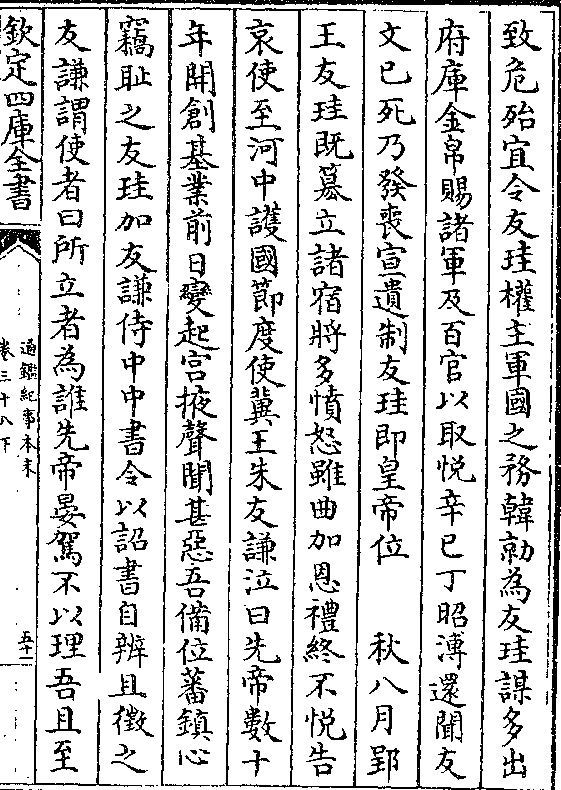 致危殆宜令友珪權主軍國之務韓勍為友珪謀多出
府庫金帛賜諸軍及百官以取悦辛巳丁昭溥還聞友
文已死乃發喪宣遺制友珪即皇帝位　秋八月郢
王友珪既簒立諸宿將多憤怒雖曲加恩禮終不悦告
哀使至河中護國節度使冀王朱友謙泣曰先帝數十
年開創基業前日變起宫掖聲聞甚惡吾備位藩鎮心
竊恥之友珪加友謙侍中中書令以詔書自辨且徵之
友謙謂使者曰所立者為誰先帝晏駕不以理吾且至
欽定四庫全書
通鑑紀事本末
卷三十八下
五十一